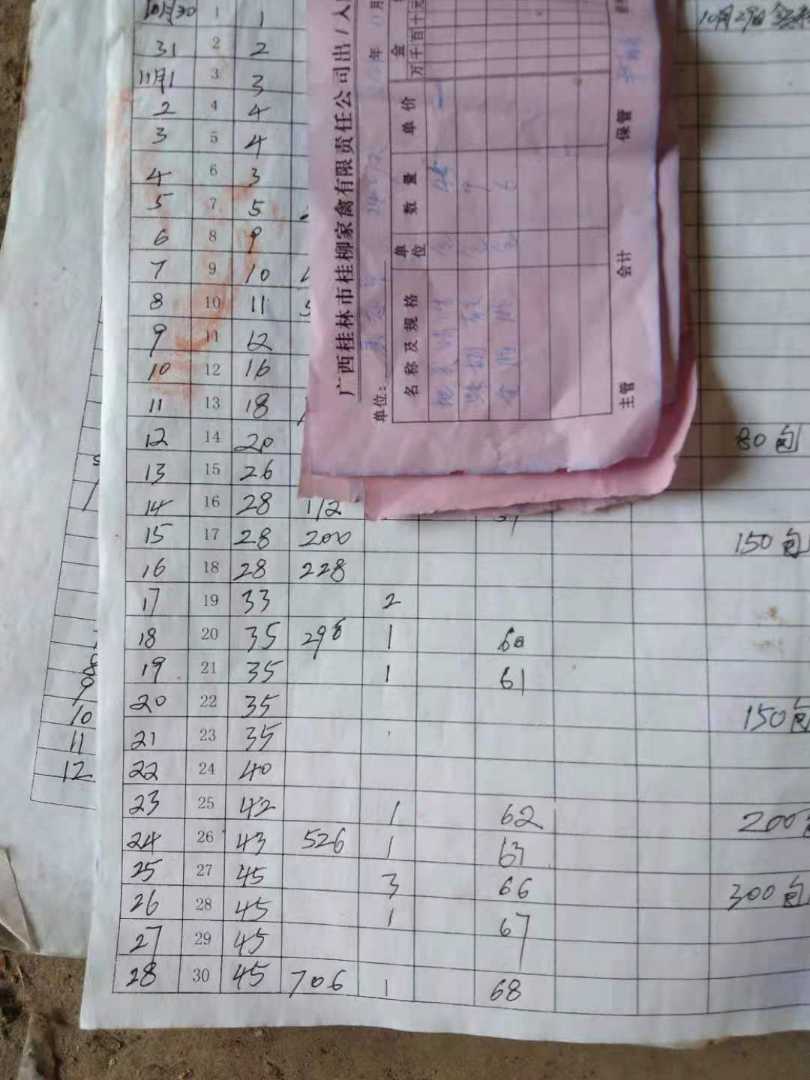 10月30 1 1
31 2 2
11月1 3 3
2 4 4
3 5 4
4 6 3
5 7 5
6 8 9
7 9 10
8 10 11
9 11 12
10 12 16
11 13 18
12 14 20 80包
13 15 26
14 16 28 112
15 17 28 200 150包
16 18 28 228
17 19 33 2
18 20 35 298 1 60
19 21 35 1 61
20 22 35 150包
21 23 35
22 24 40
23 25 42 1 62 200
24 26 43 526 1 63
25 27 45 3 66 300包
26 28 45 1 67
27 29 45
28 30 45 706 1 68
10月29日
广西桂林市桂柳家禽有限责任公司出/入
单位: 年 月
名称及规格 单位 数量 单价 金 万千百十元
主管 会计 保管
10
11
12